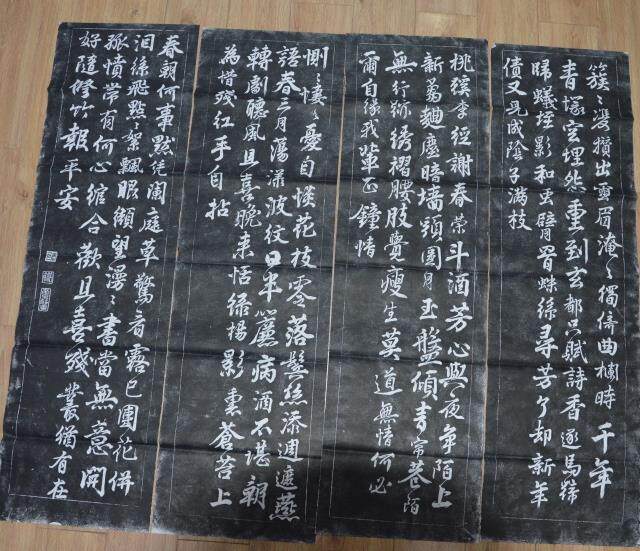 簇〻雙攢出雾眉淹〻獨倚曲欄時千年
青塚空埋怨重到玄都只賦詩香逐馬蹄
歸蟻垤影和虫臂罥蛛絲尋芳了却新年
債又見成陰子滿枝
桃蹊李徑謝春榮斗酒芳心與夜争陌上
新蒭麯塵暗墙頭圓月玉盤傾青帘巷陌
無行跡綉褶腰肢覺瘦生莫道無情何必
爾自緣我輩正鍾情
惻〻悽〻憂自惔花枝零落鬢絲添週遮燕
語春三月蕩漾波紋日半簾病酒不堪朝
轉劇聽風且喜晚来恬緑楊影裏蒼苔上
為惜殘紅手自拈
春朝何事默凭闌庭草驚看露已團花併
泪絲飛點點絮飄眼纈望漫〻書當無意開
孤憤帶有何心綰合歡且喜殘叢猶有在
好隨修竹報平安